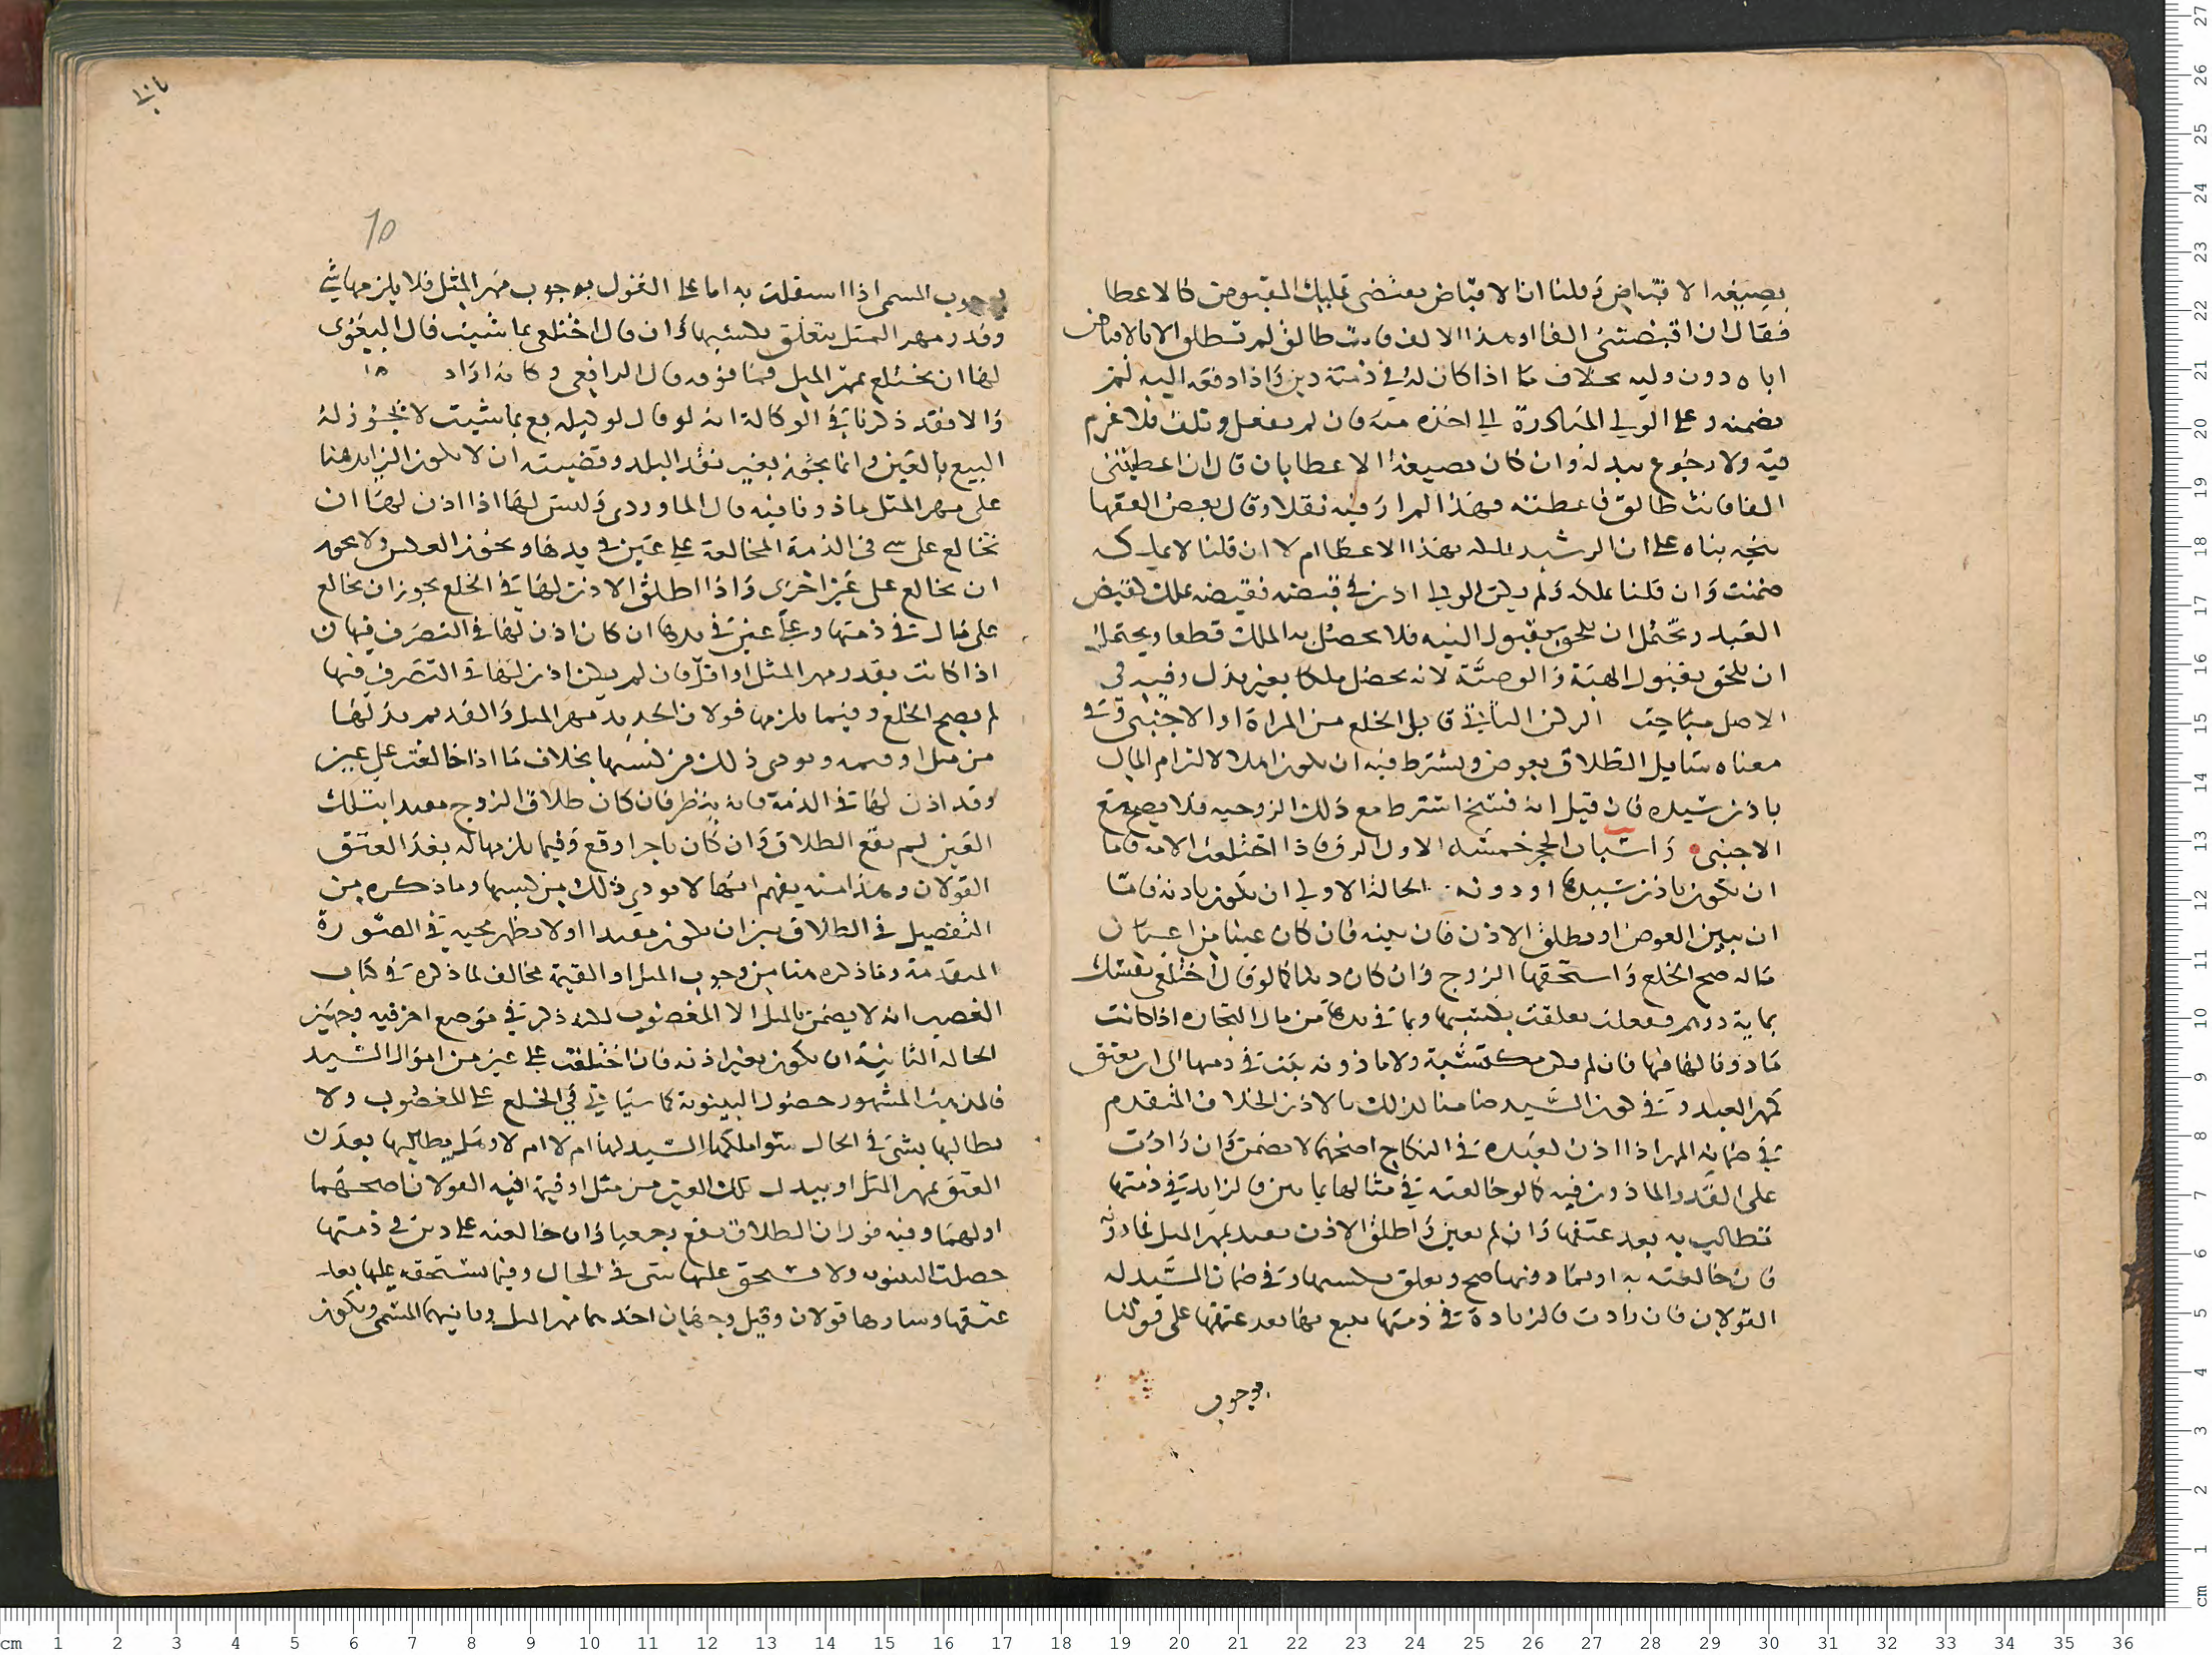 بصيغة الاقباض وقلنا ان الاقباض يقتضي تمليك المقبوض كالاعطا
فقال ان اقبضتني الفا او هذا الالف فانت طالق لم تطلق الا بالاقباض
اياه دون وليه بخلاف ما اذا كان له في ذمته دين واذا دفعه اليه لم
يضمنه وعلى الولي المبادرة الي اخذه منه فان لم يفعل وتلف فلا غرم
فيه ولا رجوع ببدله وان كان بصيغة الاعطا بان قال ان اعطيتني
الفا فانت طالق فاعطته فهذا لم ار فيه نقلا وقال بعض الفقها
يتجه بناه علي ان الرشيد يملك بهذا الاعطا ام لا ان قلنا لا يملك
ضمنت وان قلنا يملكه ولم يكن الولي اذن في قبضه فقبضه يملك كقبض
العبد ويحتمل ان يلحق بقبول البيع فلا يحصل به الملك قطعا ويحتمل
ان يلحق بقبول الهبة والوصية لانه يحصل ملكا بغير بذل وفيه في
الاصل مباحث الركن الثاني قابل الخلع من المراة او الاجنبي وفي
معناه سايل الطلاق بعوض ويشترط فيه ان يكون اهلا لالتزام المال
باذن سيده فان قيل انه فسخ اشترط مع ذلك الزوجية فلا يصح مع
الاجنبي واسباب الحجر خمسة الاول الرق فاذا اختلعت الامة فاما
ان يكون باذن سيدها او دونه الحالة الاولي ان يكون باذنه فاما
ان يبين العوض او يطلق الاذن فان بينه فان كان عينا من اعيان
ماله صح الخلع واستحقها الزوج وان كان دينا كما لو قال اختلعي نفسك
بماية درهم ففعلت تعلقت بكسبها وبما في يدها من مال التجارة اذا كانت
ماذونا لها فيها فان لم تكن مكتسبة ولا ماذونه بقيت في ذمتها الى ان تعتق
كمهر العبد وفي كون السيد ضامنا لذلك بالاذن الخلاف المتقدم
في ضمانه المهر اذا اذن لعبده في النكاح اصحهما لا يضمن وان زادت
على القدر الماذون فيه كما لو خالعته في مثالها بمايتين فالزايد في ذمتها
تطالب به بعد عتقها وان لم يعين واطلق الاذن تقيد بمهر المثل فما دونه
فان خالعته به او بما دونها صح وتعلق بكسبها وفي ضمان السيد له
القولان فان زادت فالزيادة في ذمتها يتبع بها بعد عتقها على قولنا
بوجوب
بوجوب المسمي اذا استقلت به اما علي القول بوجوب مهر المثل فلا يلزمها شي
وقدر مهر المثل يتعلق بكسبها وان قال اختلعي بما شيت قال البغوي
لها ان يختلع بمهر المثل فما فوقه قال الرافعي وكانه اراد
والا فقد ذكرنا في الوكالة انه لو قال لوكيله بع بما شيت لا يجوز له
البيع بالغبن وانما يجوز بغير نقد البلد وقضيته ان لا يكون الزايد هنا
على مهر المثل ماذونا فيه قال الماوردي وليس لها اذا اذن لها ان
تخالع على شي في الذمة المخالعة علي عين في يدها ويجوز العكس ولا يجوز
ان تخالع على عين اخرى واذا اطلق الاذن لها في الخلع يجوز ان تخالع
على مال في ذمتها وعلى عين في يدها ان كان اذن لها في التصرف فيها
اذا كانت بقدر مهر المثل او اقل فان لم يكن اذن لها في التصرف فيها
لم يصح الخلع وفيما يلزمها قولان الجديد مهر المثل والقديم بدلها
من مثل او قيمه ويودى ذلك من كسبها بخلاف ما اذا خالعت علي عين
وقد اذن لها في الذمة فانه ينظر فان كان طلاق الزوج مقيدا بتلك
العين لم يقع الطلاق وان كان ناجزا وقع وفيما يلزمها له بعد العتق
القولان وهذا منه يفهم انها لا تودي ذلك من كسبها وما ذكره من
التفصيل في الطلاق بين ان يكون مقيدا اولا يظهر مجيه في الصورة
المتقدمة وما ذكره هنا من وجوب المثل او القيمة مخالف لما ذكره في كتاب
الغصب انه لا يضمن بالمثل الا المغصوب لكنه ذكر في موضع اخر فيه وجهين
الحالة الثانية ان يكون بغير اذنه فان اختلعت علي عين من اموال السيد
فالمذهب المشهور حصول البينونة كما سياتي في الخلع علي المغصوب ولا
يطالبها بشي في الحال سوا ملكها السيد لها ام لا ام لا وهل يطالبها بعد
العتق بمهر المثل او ببدل تلك العين من مثل او قيمة فيه القولان اصحهما
اولهما وفيه قول ان الطلاق يقع رجعيا وان خالعته علي دين في ذمتها
حصلت البينونه ولا يستحق عليها شي في الحال وفيما يستحقه عليها بعد
عتقها ويسارها قولان وقيل وجهان احدهما مهر المثل وثانيهما المسمي ويكون